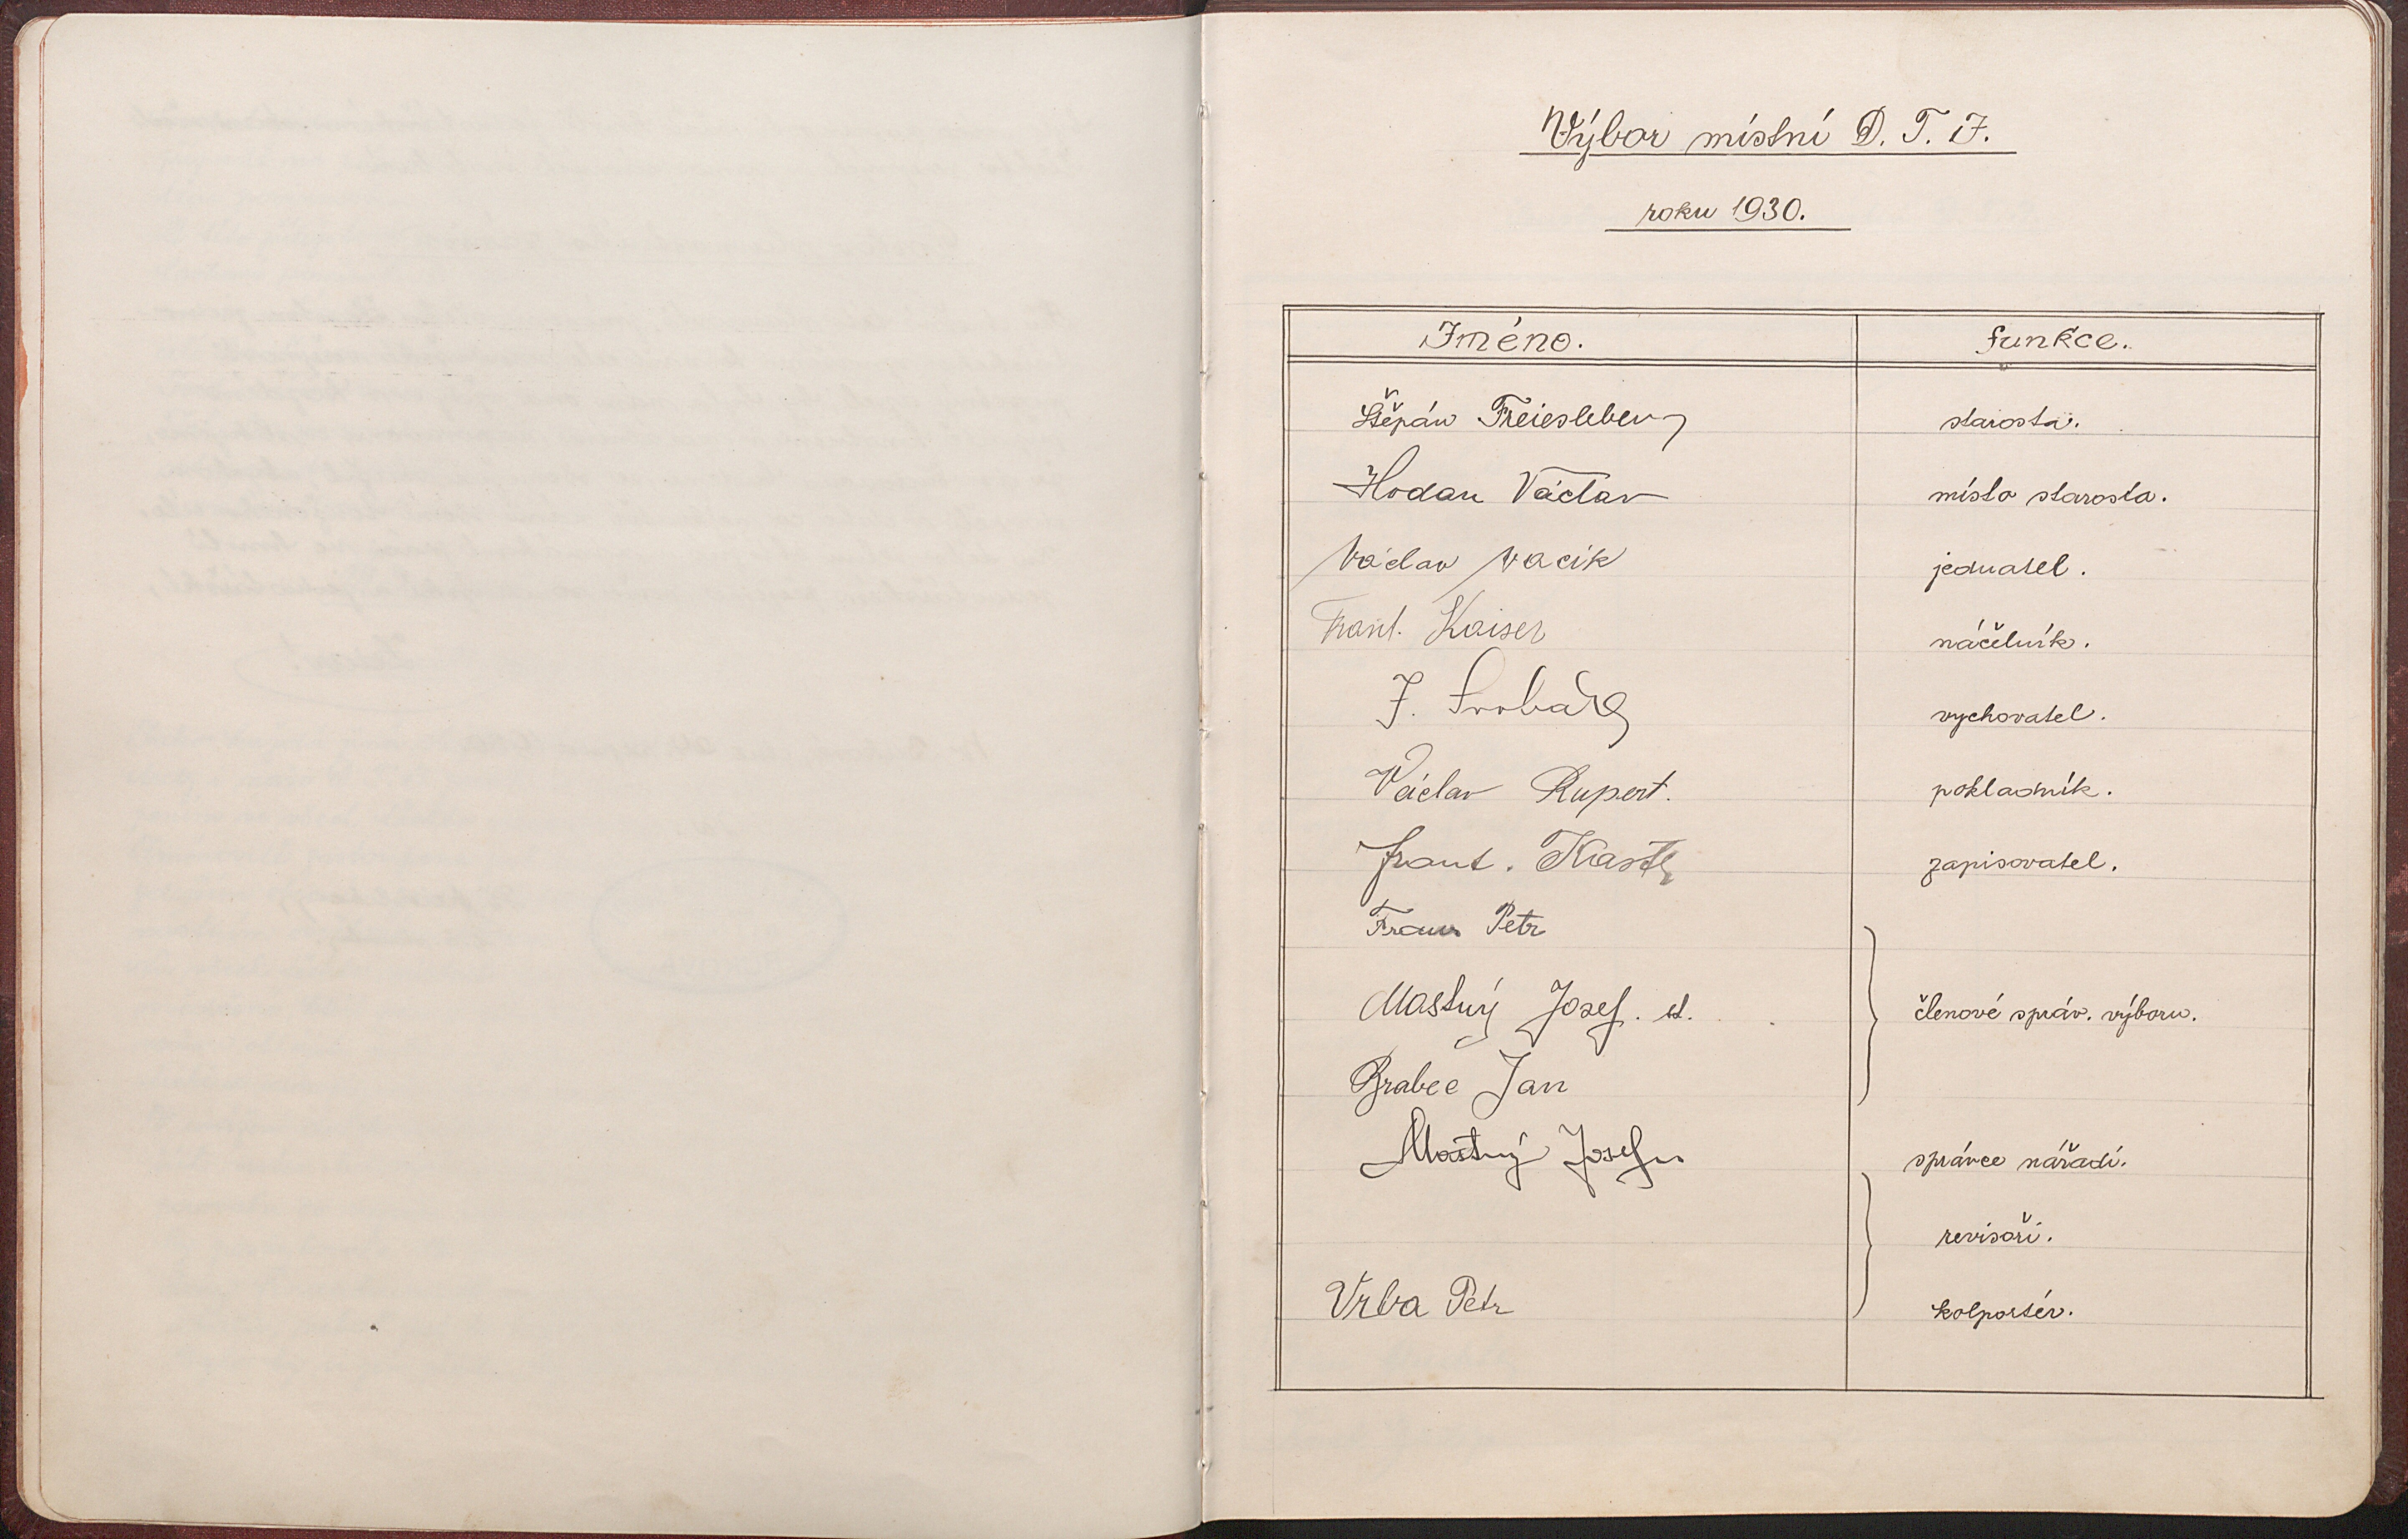 Výbor místní D. T. J.
roku 1930.
Jméno. funkce.
Štěpán Freiesleben starosta.
Hodan Václav místo starosta.
Václav Vacík jednatel.
Frant. Kaiser náčelník.
J. Svoboda vychovatel.
Václav Rupert. pokladník.
Frant. Kastl zapisovatel.
Franz Petr
Mastný Josef. st. členové správ. výboru.
Brabec Jan
Mastný Josef správce nářadí.
revisoři.
Vrba Petr kolportér.